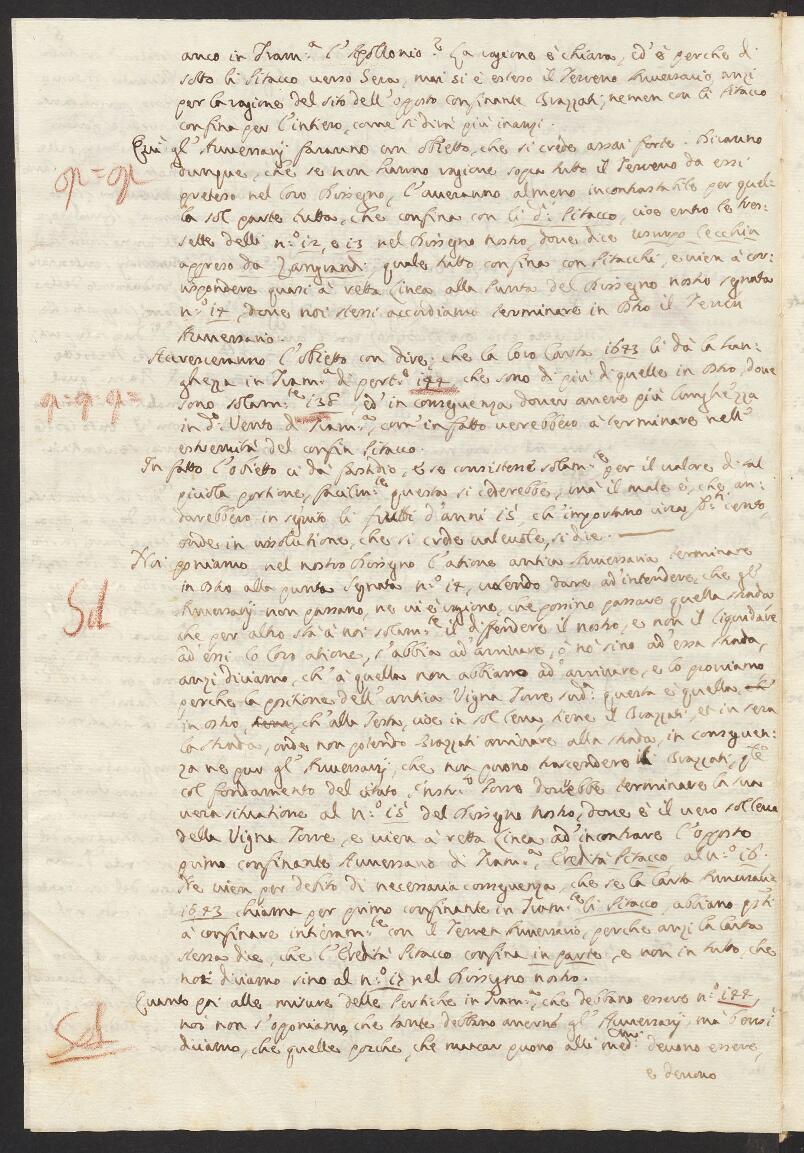 anco in Tram.ᵃ l'Apollonio? La ragione è chiara, ed'è perche di
sotto li Pitacco verso Sera, mai si è esteso il Terreno Auversario, anzi
per la ragione del sito dell'opposto confinante Brazzati, nemen con li Pitacco
confina per l'intiero, come si dirà più inanzi.
Quì gl'Auversarj faranno un obietto, che si crede assai forte. Diranno
dunque, che se non hanno ragione sopra tutto il Terreno da essi
preteso nel loro Dissegno, l'averanno almeno incontrastabile per quel-
la sol parte tutta, che confina con li d.ⁱ Pitacco, cioè entro le
sette delli n.º 12, e 13 nel Dissegno nostro, dove dice usurpo Cecchin
appreso da Zangrandi, quale tutto confina con Pitacchi, e vien à cor-
rispondere quasi à retta linea alla punta del Dissegno nostro segnata
n.º 14, dove noi stessi accordiamo terminare in Ostro il Terren
Auversario.
Accresceranno l'obietto con dire, che la loro Carta 1643 li dà la lun-
ghezza in Tram.ᵃ di pert.ᵉ 144, che sono di più di quelle in Ostro, dove
sono solam.ᵗᵉ 138, ed'in conseguenza dover avere più lunghezza
in d.º Vento di Tram.ᵃ, com'in fatto verebbero à terminare nell'
estremità del confin Pitacco.
In fatto l'obietto ci dà fastidio, e se consistesse solam.ᵗᵉ per il valore di tal
picciola portione, facilm.ᵗᵉ questa si cederebbe, mà il male è, che an-
darebbero in seguito li frutti d'anni 15, ch'importano circa cento,
onde in resolutione, che si crede valevole, si dice.
Noi poniamo nel nostro Dissegno l'atione antica Auversaria terminare
in Ostro alla punta segnata n.º 14, volendo dare ad'intendere, che gl'
Auversarj non passano, ne vi è ragione, che possino passare quella strada
che per altro stà à noi solam.ᵗᵉ il diffendere il nostro, e non il liquidare
ad'essi lo loro atione, s'abbia ad'arrivare, ò nò sino ad'essa strada,
anzi diciamo, ch'à quella non abbiano ad'arrivare, e lo proviamo
perche la positione dell'antica Vigna Torre sud.ᵃ questa è quella
in Ostro, ch'alla Sesta, cioè in sol leva, tiene il Brazzati, et in sera
la strada, onde non potendo Brazzati arrivare alla strada, in conseguen-
za ne pur gl'Auversarj, che non puono trascendere il Brazzati,
col fondamento del citato Torre dovrebbe terminare la sua
vera situatione al n.º 15 del Dissegno nostro, dove è il vero sol leva
della Vigna Torre, e vien à retta linea ad'incontrare l'opposto
primo confinante Auversario di Tram.ᵃ, Eredità Pitacco al n.º 16.
Ne vien per debito di necessaria conseguenza, che se la Carta Auversaria
1643 chiama per primo confinante in Tram.ᵃ li Pitacco, abbiano q.ᵗⁱ
à confinare intieram.ᵗᵉ con il Terren Auversario, perche anzi la Carta
stessa dice, che l'Eredità Pitacco confina in parte, e non in tutto, che
noi diciamo sino al n.º 17 nel Dissegno nostro.
Quanto poi alle misure delle Pertiche in Tram.ᵃ, che debbano essere n.º 144,
noi non s'opponiamo, che tante debbano averne gl'Auversarj, mà bensì
diciamo, che quelle poche, che mancar puono alli med.ᵐⁱ devono essere,
e devono
Sd
Sd